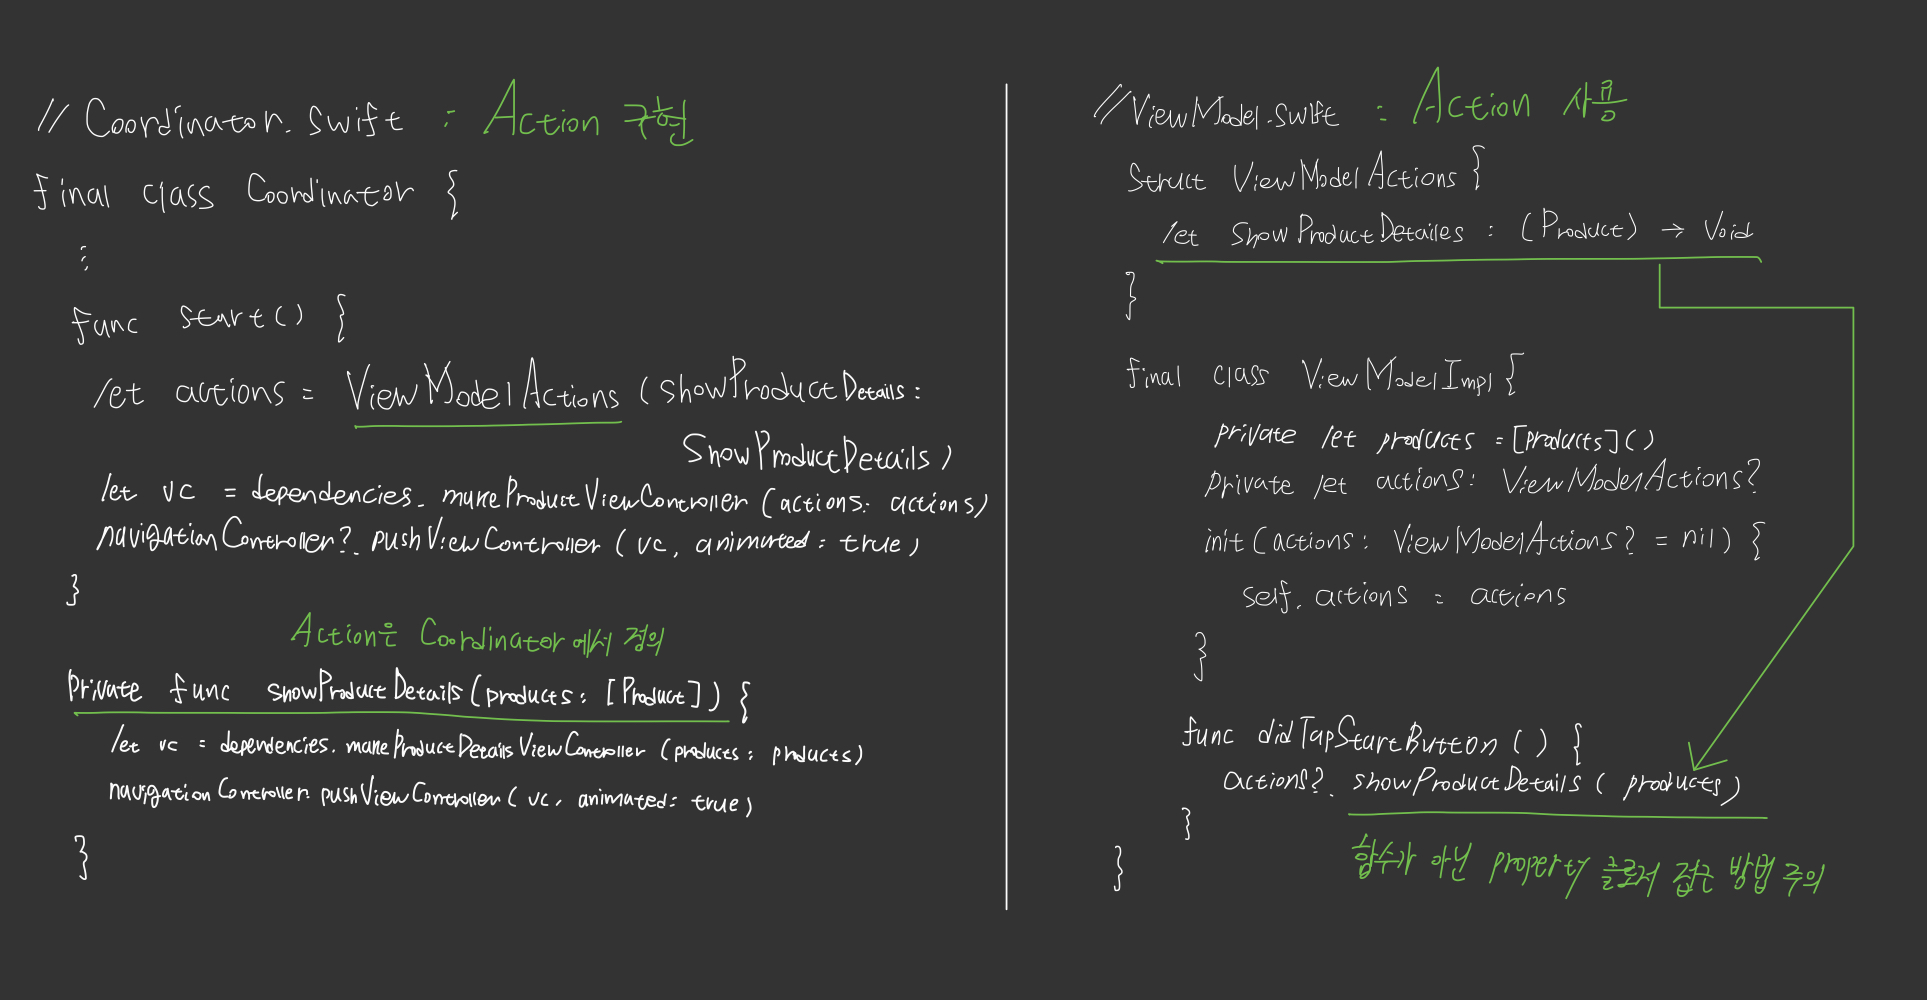 // Coordinator.swift : Action 구현
final class Coordinator {
⋮
func start() {
let actions = ViewModelActions (showProductDetails:
ShowProductDetails)
let vc = dependencies.makeProductViewController (actions: actions)
navigationController?.pushViewController (vc, animated: true)
}
Action은 Coordinator에서 정의
private func showProductDetails(products: [Product]) {
let vc = dependencies.makeProductDetailsViewController (products: products)
navigationController.pushViewController (vc, animated: true)
}
//ViewModel.swift : Action 사용
Struct ViewModelActions {
let showProductDetailes : (Product) → Void
}
final class ViewModelImpl {
private let products = [products]()
private let actions: ViewModelActions?
init(actions: ViewModelActions? = nil) {
self.actions = actions
}
func didTapStartButton() {
actions?.showProductDetails (products)
}
}
함수가 아닌 property 클로저 접근 방법 주의